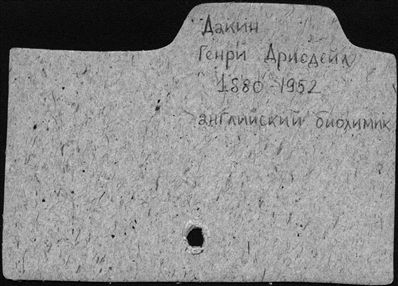 Дакин
Генри Дрисдейл
1880-1952
английский биохимик